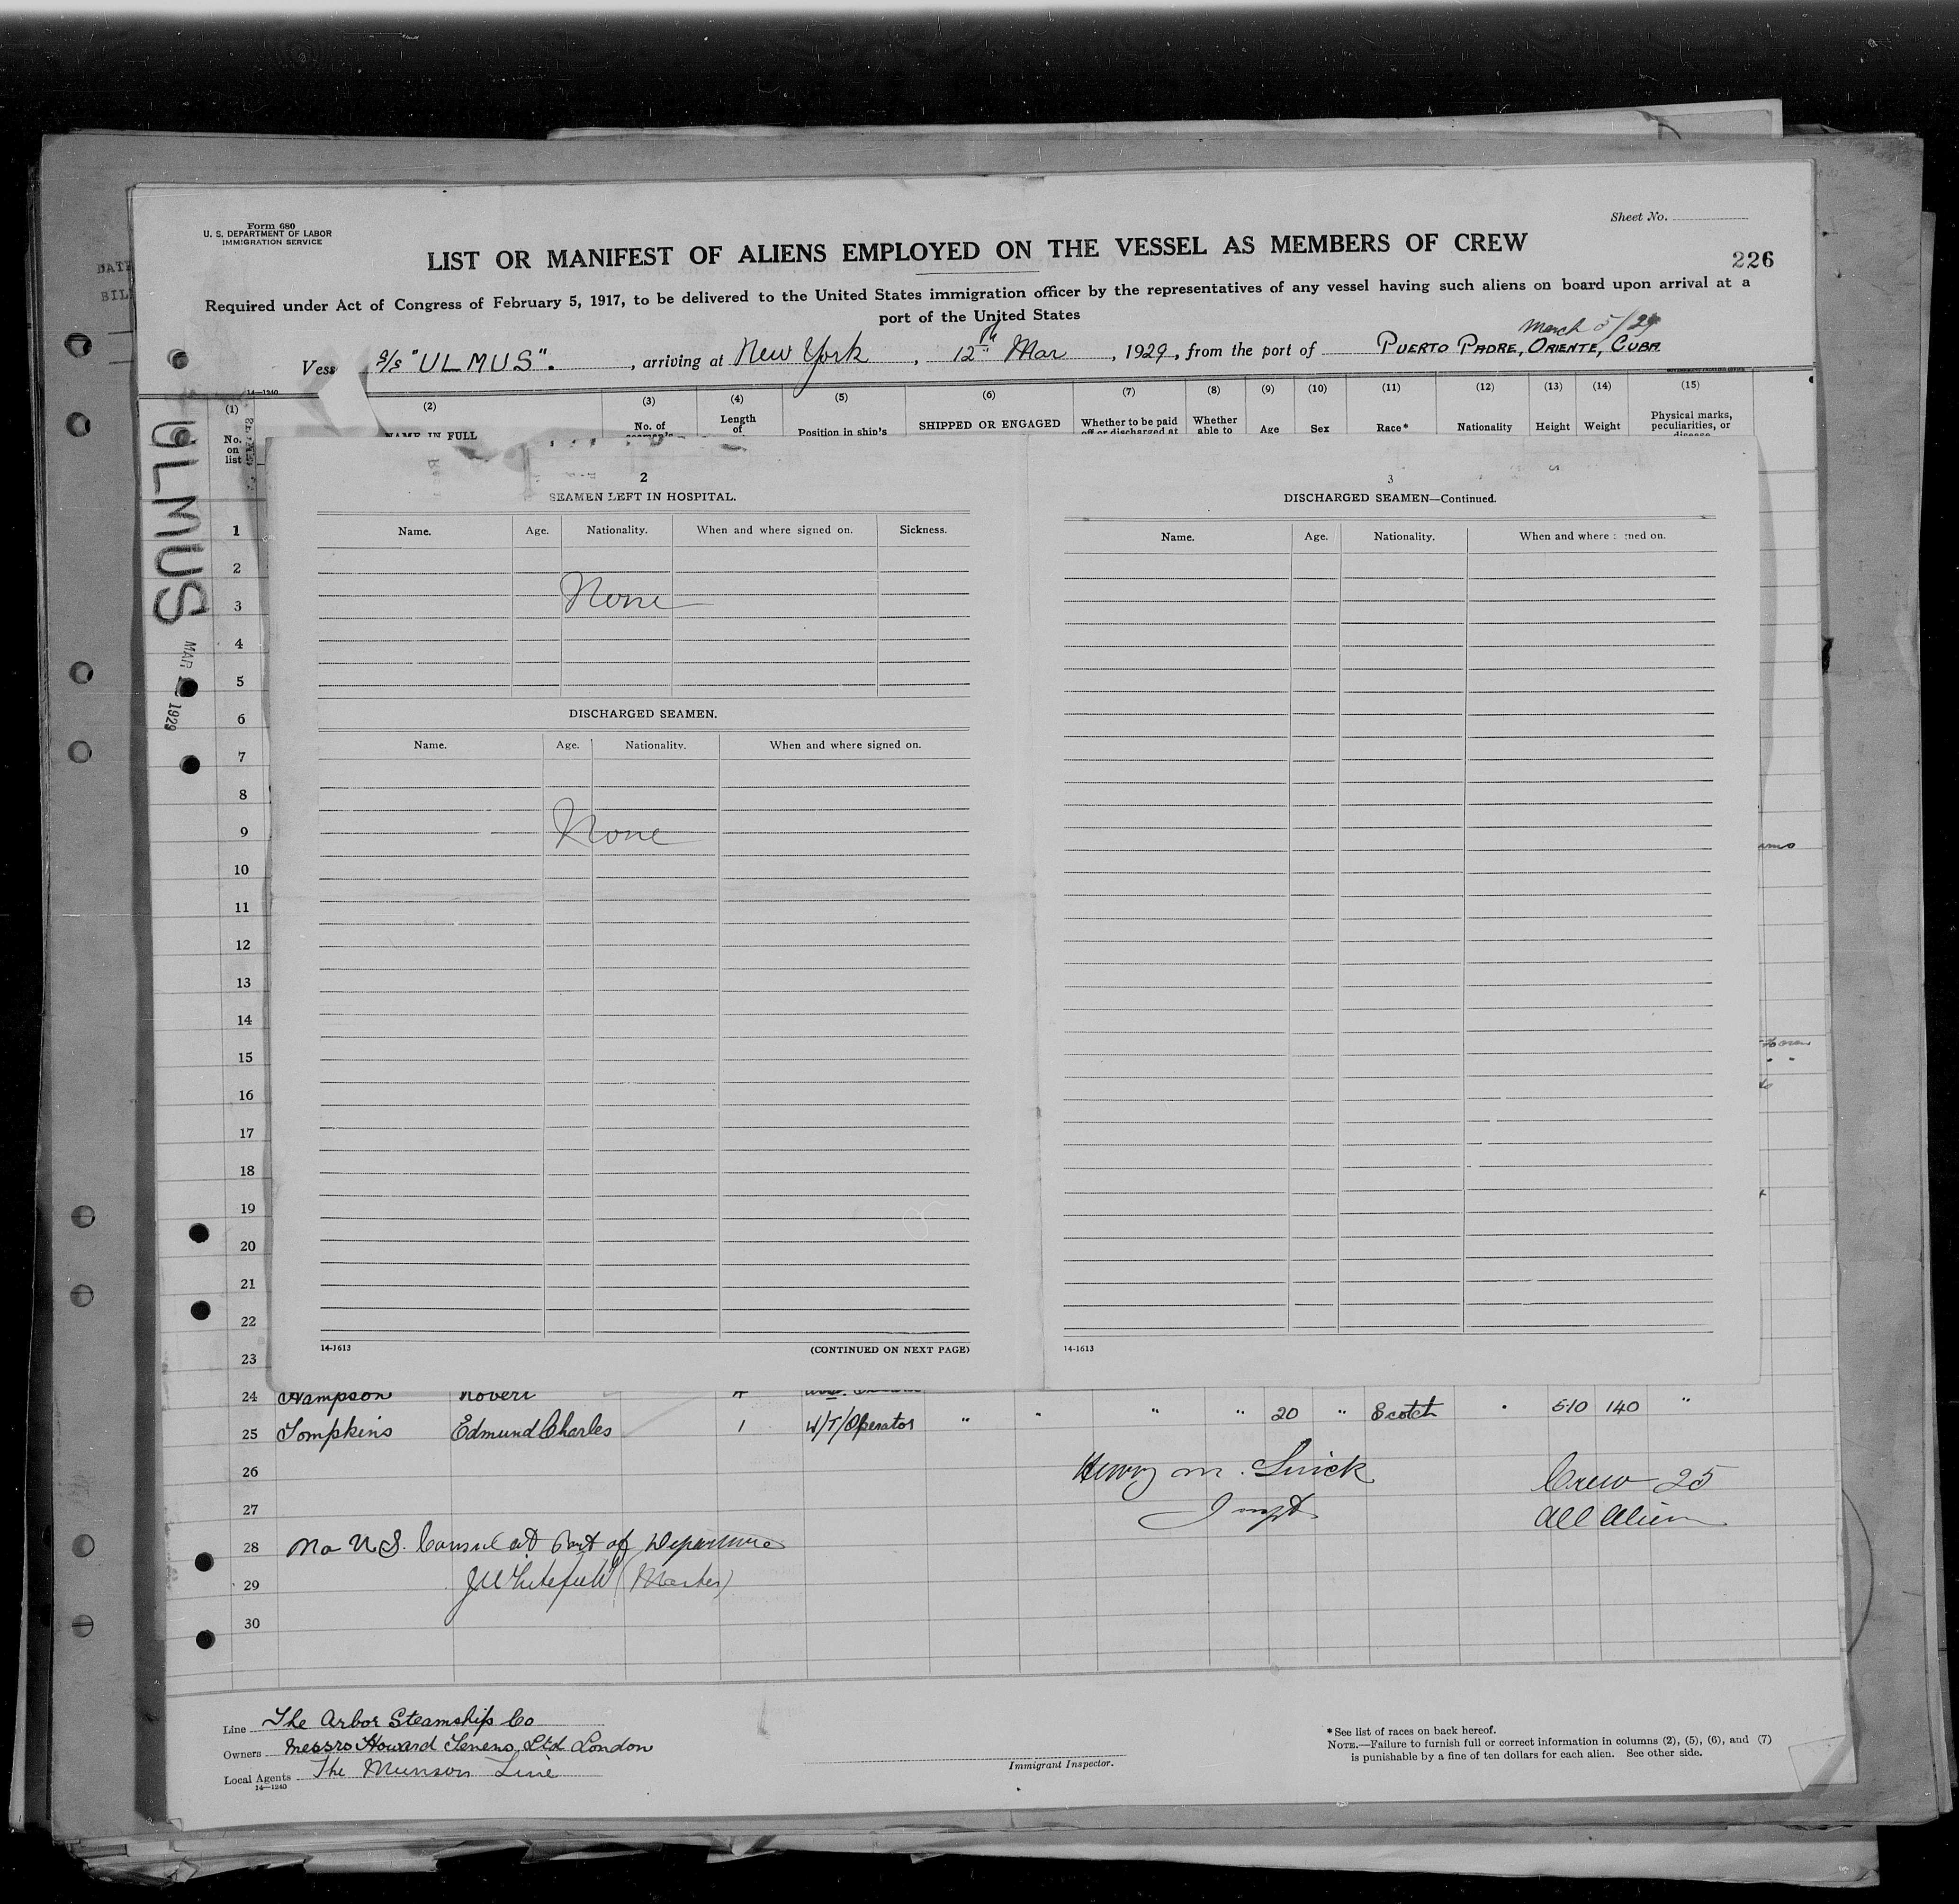 Form 680
U. S. DEPARTMENT OF LABOR
IMMIGRATION SERVICE
Sheet No.
LIST OR MANIFEST OF ALIENS EMPLOYED ON THE VESSEL AS MEMBERS OF CREW
226
Required under Act of Congress of February 5, 1917, to be delivered to the United States immigration officer by the representatives of any vessel having such aliens on board upon arrival at a
port of the United States
March 5/29
Vess S/S "ULMUS". , arriving at New York , 12th Mar , 1929, from the port of PUERTO PADRE, ORIENTE, CUBA.
14—1240
(1) (2) (3) (4) (5) (6) (7) (8) (9) (10) (11) (12) (13) (14) (15)
No. on list
NAME IN FULL
No. of
Length of
Position in ship's
SHIPPED OR ENGAGED
Whether to be paid off or discharged at
Whether able to
Age
Sex
Race*
Nationality
Height
Weight
Physical marks, peculiarities, or disease
ULMUS
MAR 1929
2
SEAMEN LEFT IN HOSPITAL.
Name. Age. Nationality. When and where signed on. Sickness.
None
DISCHARGED SEAMEN.
Name. Age. Nationality. When and where signed on.
None
14-1613
(CONTINUED ON NEXT PAGE)
3
DISCHARGED SEAMEN—Continued.
Name. Age. Nationality. When and where signed on.
14-1613
1
2
3
4
5
6
7
8
9
10
11
12
13
14
15
16
17
18
19
20
21
22
23
24 Hampson Robert
25 Tompkins Edmund Charles 1 W/T/Operator " " " " 20 " Scotch " 510 140 "
26
27
28
29
30
Henry M.
Inspt
Crew 25
All Alien
No U.S. Consul at Port of Departure
(Master)
Line The Arbor Steamship Co
Owners Messrs Howard Tenens Ltd London
Local Agents The Munson Line
14—1240
Immigrant Inspector.
*See list of races on back hereof.
NOTE.—Failure to furnish full or correct information in columns (2), (5), (6), and (7)
is punishable by a fine of ten dollars for each alien. See other side.